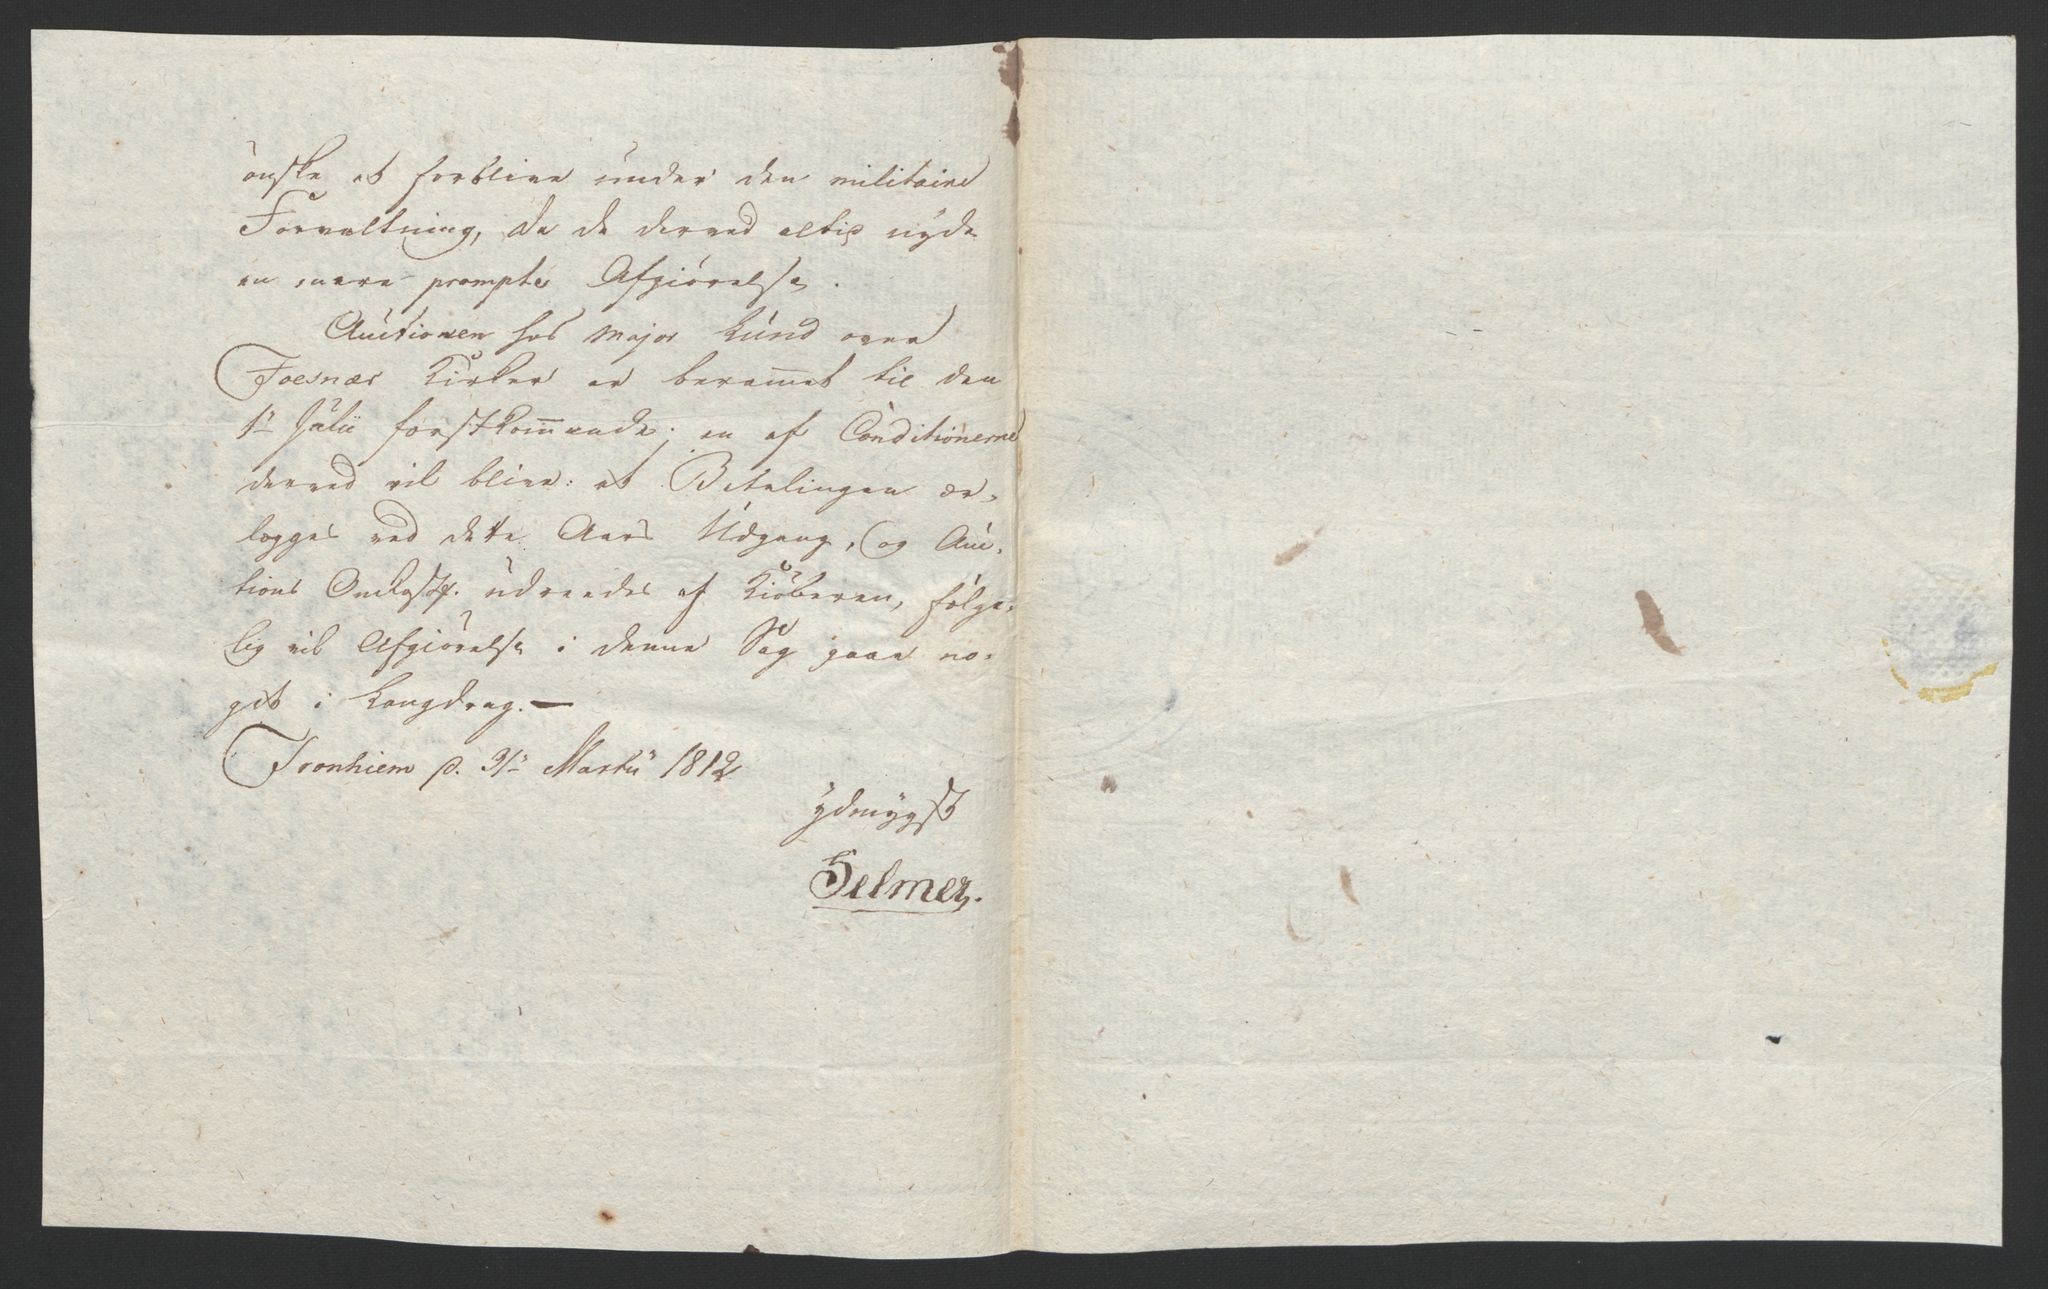 önske at forblive under den militaire
Forvaltning, da de derved altid nyde
en mere prompte Afgiörelse.
Auctionen hos Major Lund over
Foesnæs Kirker er berammet til den
1ste Julii forstkommende; en af Conditionerne
derved vil blive: at Betalingen er-
lægges ved dette Aars Udgang, og Auc-
tions Omkostn. udreedes af Kiöberen, fölge-
lig vil Afgiörelse i denne Sag gaae no-
get i Langdrag. —
Tronhiem d. 31te Martii 1812
ydmygst
Selmer.